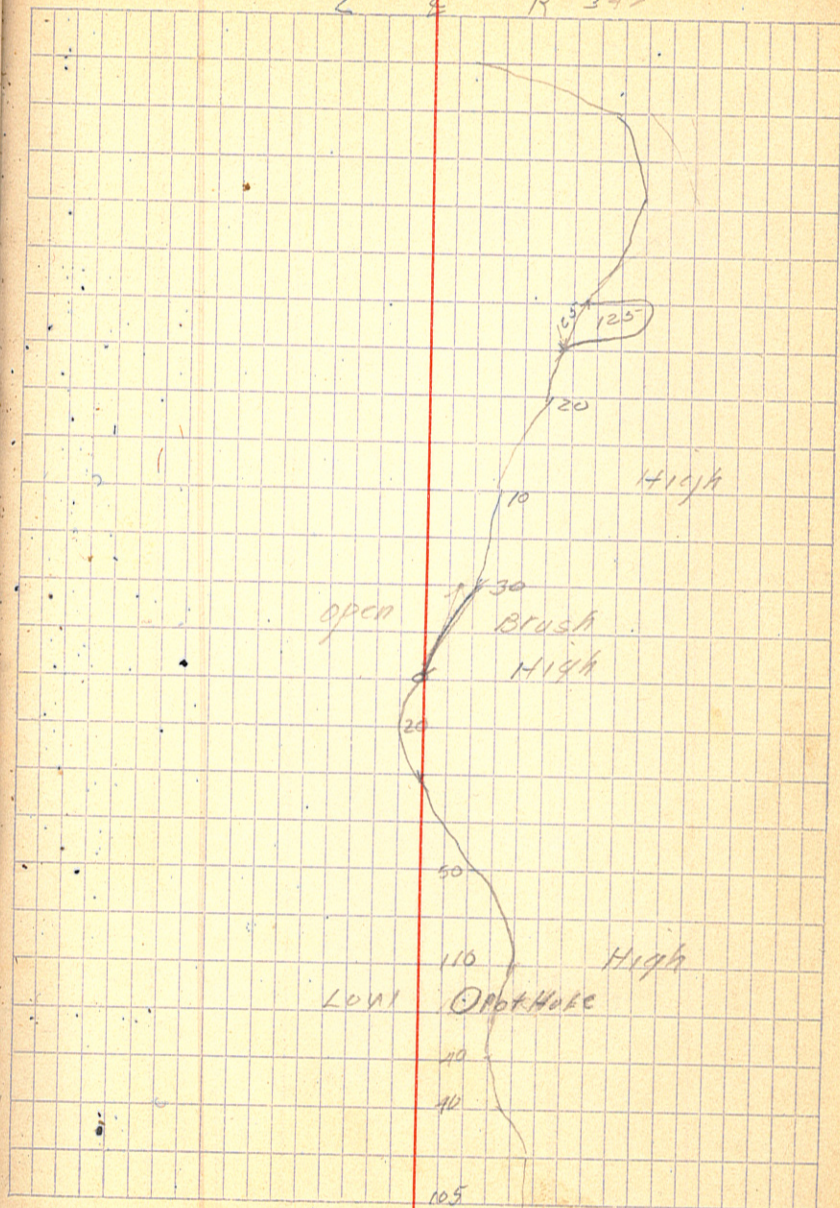 L ℄ R
65
125
20
10
High
30
open Brush
High
20
50
110 High
Low PotHole
40
40
105